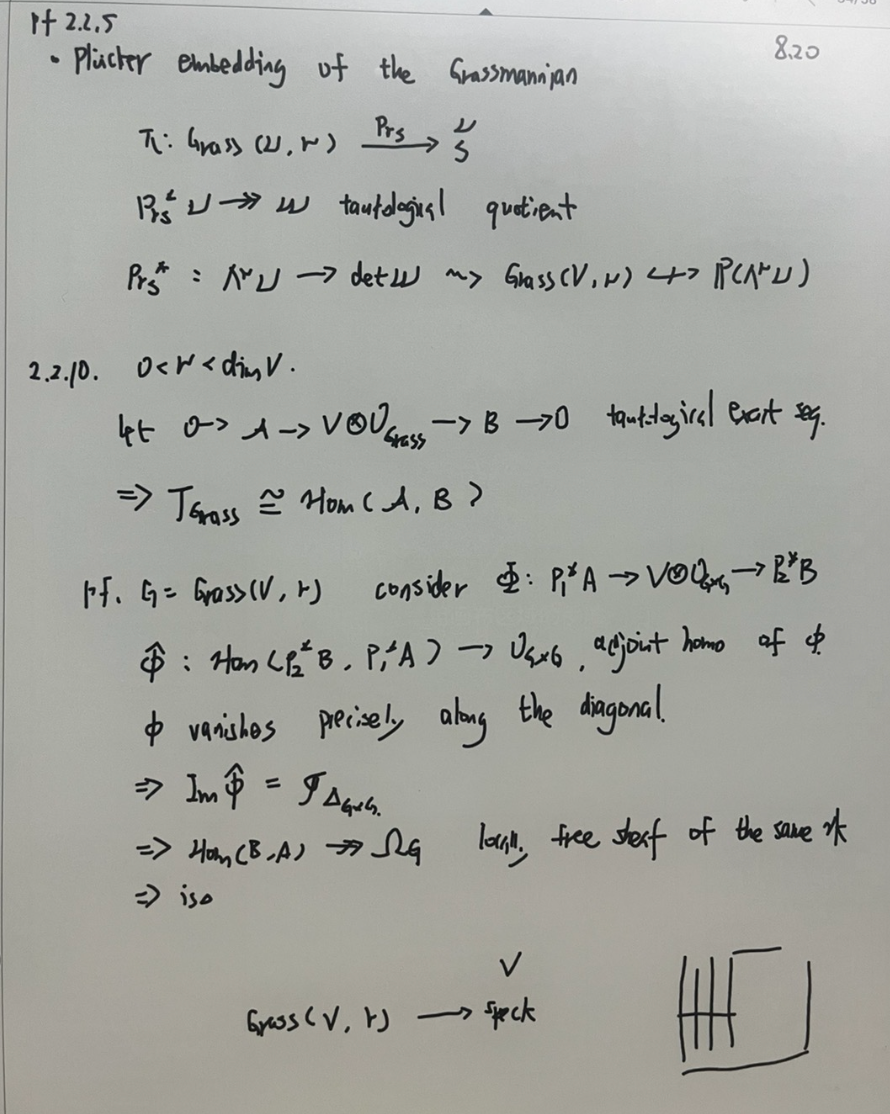 pf 2.2.5
8.20
• Plücker embedding of the Grassmannian
π: Grass(V, r) —Prs→ S
V
Prs* V ↠ W tautological quotient
Prs* : Λʳ V → det W ⇝ Grass(V, r) ↪ ℙ(Λʳ V)
2.2.10. 0 < r < dim V.
let 0 → A → V⊗O_Grass → B → 0 tautological exact seq.
⇒ T_Grass ≅ Hom(A, B)
pf. G = Grass(V, r) consider Φ: P₁* A → V⊗O_G×G → P₂* B
Φ̂ : Hom(P₂* B, P₁* A) → O_G×G, adjoint homo of Φ.
Φ vanishes precisely along the diagonal.
⇒ Im Φ̂ = 𝓘_Δ_G×G.
⇒ Hom(B, A) ↠ Ω_G locally free sheaf of the same rk
⇒ iso
V
Grass(V, r) → Spec k